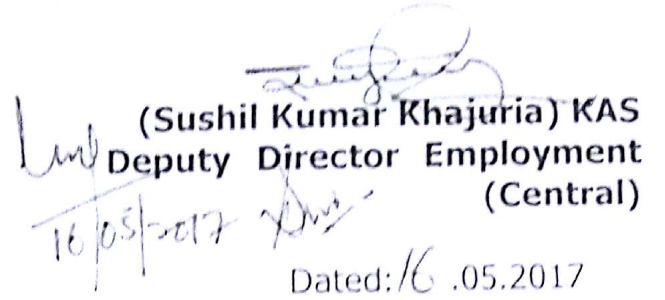 (Sushil Kumar Khajuria) KAS
Deputy Director Employment
(Central)
16/05/2017
Dated: 16 .05.2017